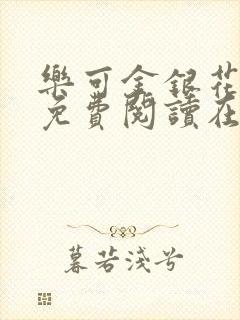 樂可金銀花
免費閱讀在
暮若淺兮